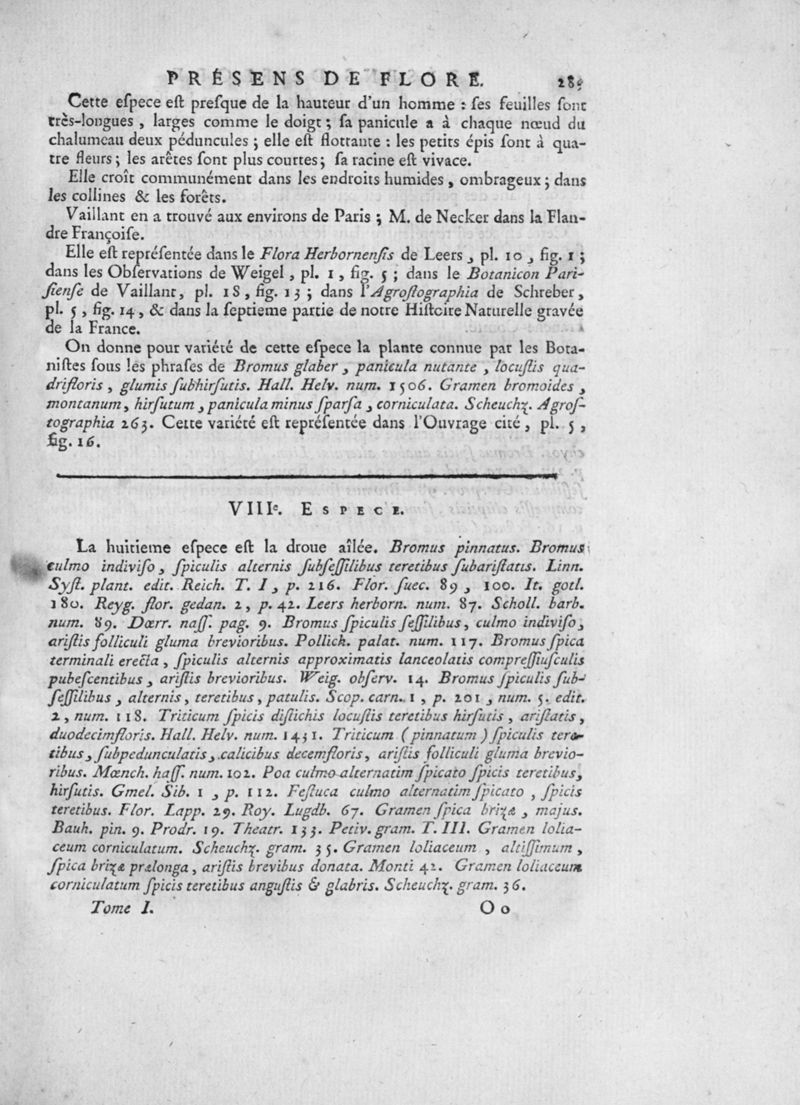 PRÉSENS DE FLORE. 289
Cette eſpece eſt preſque de la hauteur d'un homme : ſes feuilles ſont
très-longues , larges comme le doigt ; ſa panicule a à chaque nœud du
chalumeau deux péduncules ; elle eſt flottante : les petits épis ſont à qua-
tre fleurs ; les arêtes ſont plus courtes ; ſa racine eſt vivace.
Elle croît communément dans les endroits humides , ombrageux ; dans
les collines & les forêts.
Vaillant en a trouvé aux environs de Paris ; M. de Necker dans la Flan-
dre Françoiſe.
Elle eſt repréſentée dans le Flora Herbornenſis de Leers , pl. 10 , fig. 1 ;
dans les Obſervations de Weigel , pl. 1 , fig. 5 ; dans le Botanicon Pari-
ſienſe de Vaillant, pl. 18 , fig. 13 ; dans l'Agroſtographia de Schreber,
pl. 5 , fig. 14 , & dans la ſeptieme partie de notre Hiſtoire Naturelle gravée
de la France.
On donne pour variété de cette eſpece la plante connue par les Bota-
niſtes ſous les phraſes de Bromus glaber , panicula nutante , locuſtis qua-
drifloris , glumis ſubhirſutis. Hall. Helv. num. 1506. Gramen bromoides ,
montanum, hirſutum , panicula minus ſparſa , corniculata. Scheuchz. Agroſ-
tographia 263. Cette variété eſt repréſentée dans l'Ouvrage cité , pl. 5 ,
fig. 16.
VIIIe. ESPECE.
La huitieme eſpece eſt la droue aîlée. Bromus pinnatus. Bromus
culmo indiviſo , ſpiculis alternis ſubſeſſilibus teretibus ſubariſtatis. Linn.
Syſt. plant. edit. Reich. T. I , p. 216. Flor. ſuec. 89 , 100. It. gotl.
180. Reyg. flor. gedan. 2, p. 42. Leers herborn. num. 87. Scholl. barb.
num. 89. Dœrr. naſſ. pag. 9. Bromus ſpiculis ſeſſilibus, culmo indiviſo,
ariſtis folliculi gluma brevioribus. Pollick. palat. num. 117. Bromus ſpica
terminali erecta , ſpiculis alternis approximatis lanceolatis compreſſiuſculis
pubeſcentibus , ariſtis brevioribus. Weig. obſerv. 14. Bromus ſpiculis ſub-
ſeſſilibus , alternis, teretibus , patulis. Scop. carn. 1 , p. 201 , num. 5. edit.
2 , num. 118. Triticum ſpicis diſtichis locuſtis teretibus hirſutis , ariſtatis ,
duodecimfloris. Hall. Helv. num. 1431. Triticum (pinnatum) ſpiculis tere-
tibus, ſubpedunculatis, calicibus decemfloris, ariſtis folliculi gluma brevio-
ribus. Mœnch. haſſ. num. 102. Poa culmo alternatim ſpicato ſpicis teretibus,
hirſutis. Gmel. Sib. 1 , p. 112. Feſtuca culmo alternatim ſpicato , ſpicis
teretibus. Flor. Lapp. 29. Roy. Lugdb. 67. Gramen ſpica brizæ , majus.
Bauh. pin. 9. Prodr. 19. Theatr. 133. Petiv. gram. T. III. Gramen lolia-
ceum corniculatum. Scheuchz. gram. 35. Gramen loliaceum , altiſſimum ,
ſpica brizæ prælonga , ariſtis brevibus donata. Monti 42. Gramen loliaceum
corniculatum ſpicis teretibus anguſtis & glabris. Scheuchz. gram. 36.
Tome I. Oo